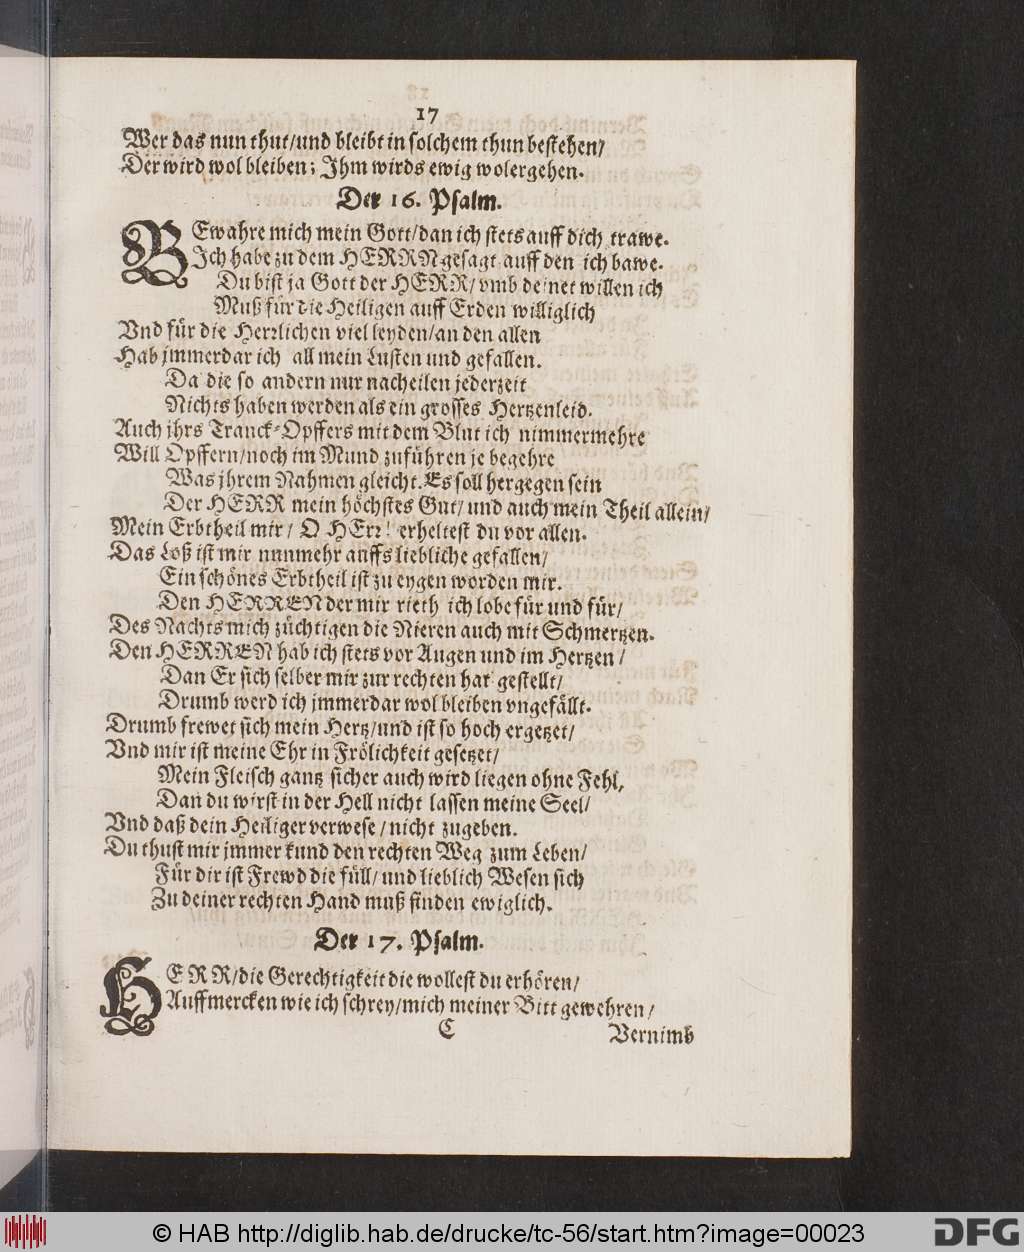 17
Wer das nun thut/und bleibt in solchem thun bestehen/
Der wird wol bleiben; Jhm wirds ewig wolergehen.
Der 16. Psalm.
BEwahre mich mein Gott/dan ich stets auff dich trawe.
Jch habe zu dem HERRN gesagt auff den ich bawe.
Du bist ja Gott der HERR/ vmb deinet willen ich
Muß fuͤr die Heiligen auff Erden williglich
Vnd fuͤr die Herꝛlichen viel leyden/an den allen
Hab jmmerdar ich all mein Lusten und gefallen.
Da die so andern nur nacheilen jederzeit
Nichts haben werden als ein grosses Hertzenleid.
Auch jhrs Tranck-Opffers mit dem Blut ich nimmermehre
Will Opffern/noch im Mund zufuͤhren je begehre
Was jhrem Nahmen gleicht. Es soll hergegen sein
Der HERR mein hoͤchstes Gut/ und auch mein Theil allein/
Mein Erbtheil mir/ O HErꝛ! erheltest du vor allen.
Das Loß ist mir nunmehr auffs liebliche gefallen/
Ein schoͤnes Erbtheil ist zu eygen worden mir.
Den HERREN der mir rieth ich lobe fuͤr und fuͤr/
Des Nachts mich zuͤchtigen die Nieren auch mit Schmertzen.
Den HERREN hab ich stets vor Augen und im Hertzen/
Dan Er sich selber mir zur rechten hat gestellt/
Drumb werd ich jmmerdar wol bleiben vngefaͤllt.
Drumb frewet sich mein Hertz/und ist so hoch ergetzet/
Vnd mir ist meine Ehr in Froͤlichkeit gesetzet/
Mein Fleisch gantz sicher auch wird liegen ohne Fehl,
Dan du wirst in der Hell nicht lassen meine Seel/
Vnd daß dein Heiliger verwese/ nicht zugeben.
Du thust mir jmmer kund den rechten Weg zum Leben/
Fuͤr dir ist Frewd die fuͤll/ und lieblich Wesen sich
Zu deiner rechten Hand muß finden ewiglich.
Der 17. Psalm.
HERR/die Gerechtigkeit die wollest du erhoͤren/
Auffmercken wie ich schrey/mich meiner Bitt gewehren/
C Vernimb
© HAB http://diglib.hab.de/drucke/tc-56/start.htm?image=00023
DFG